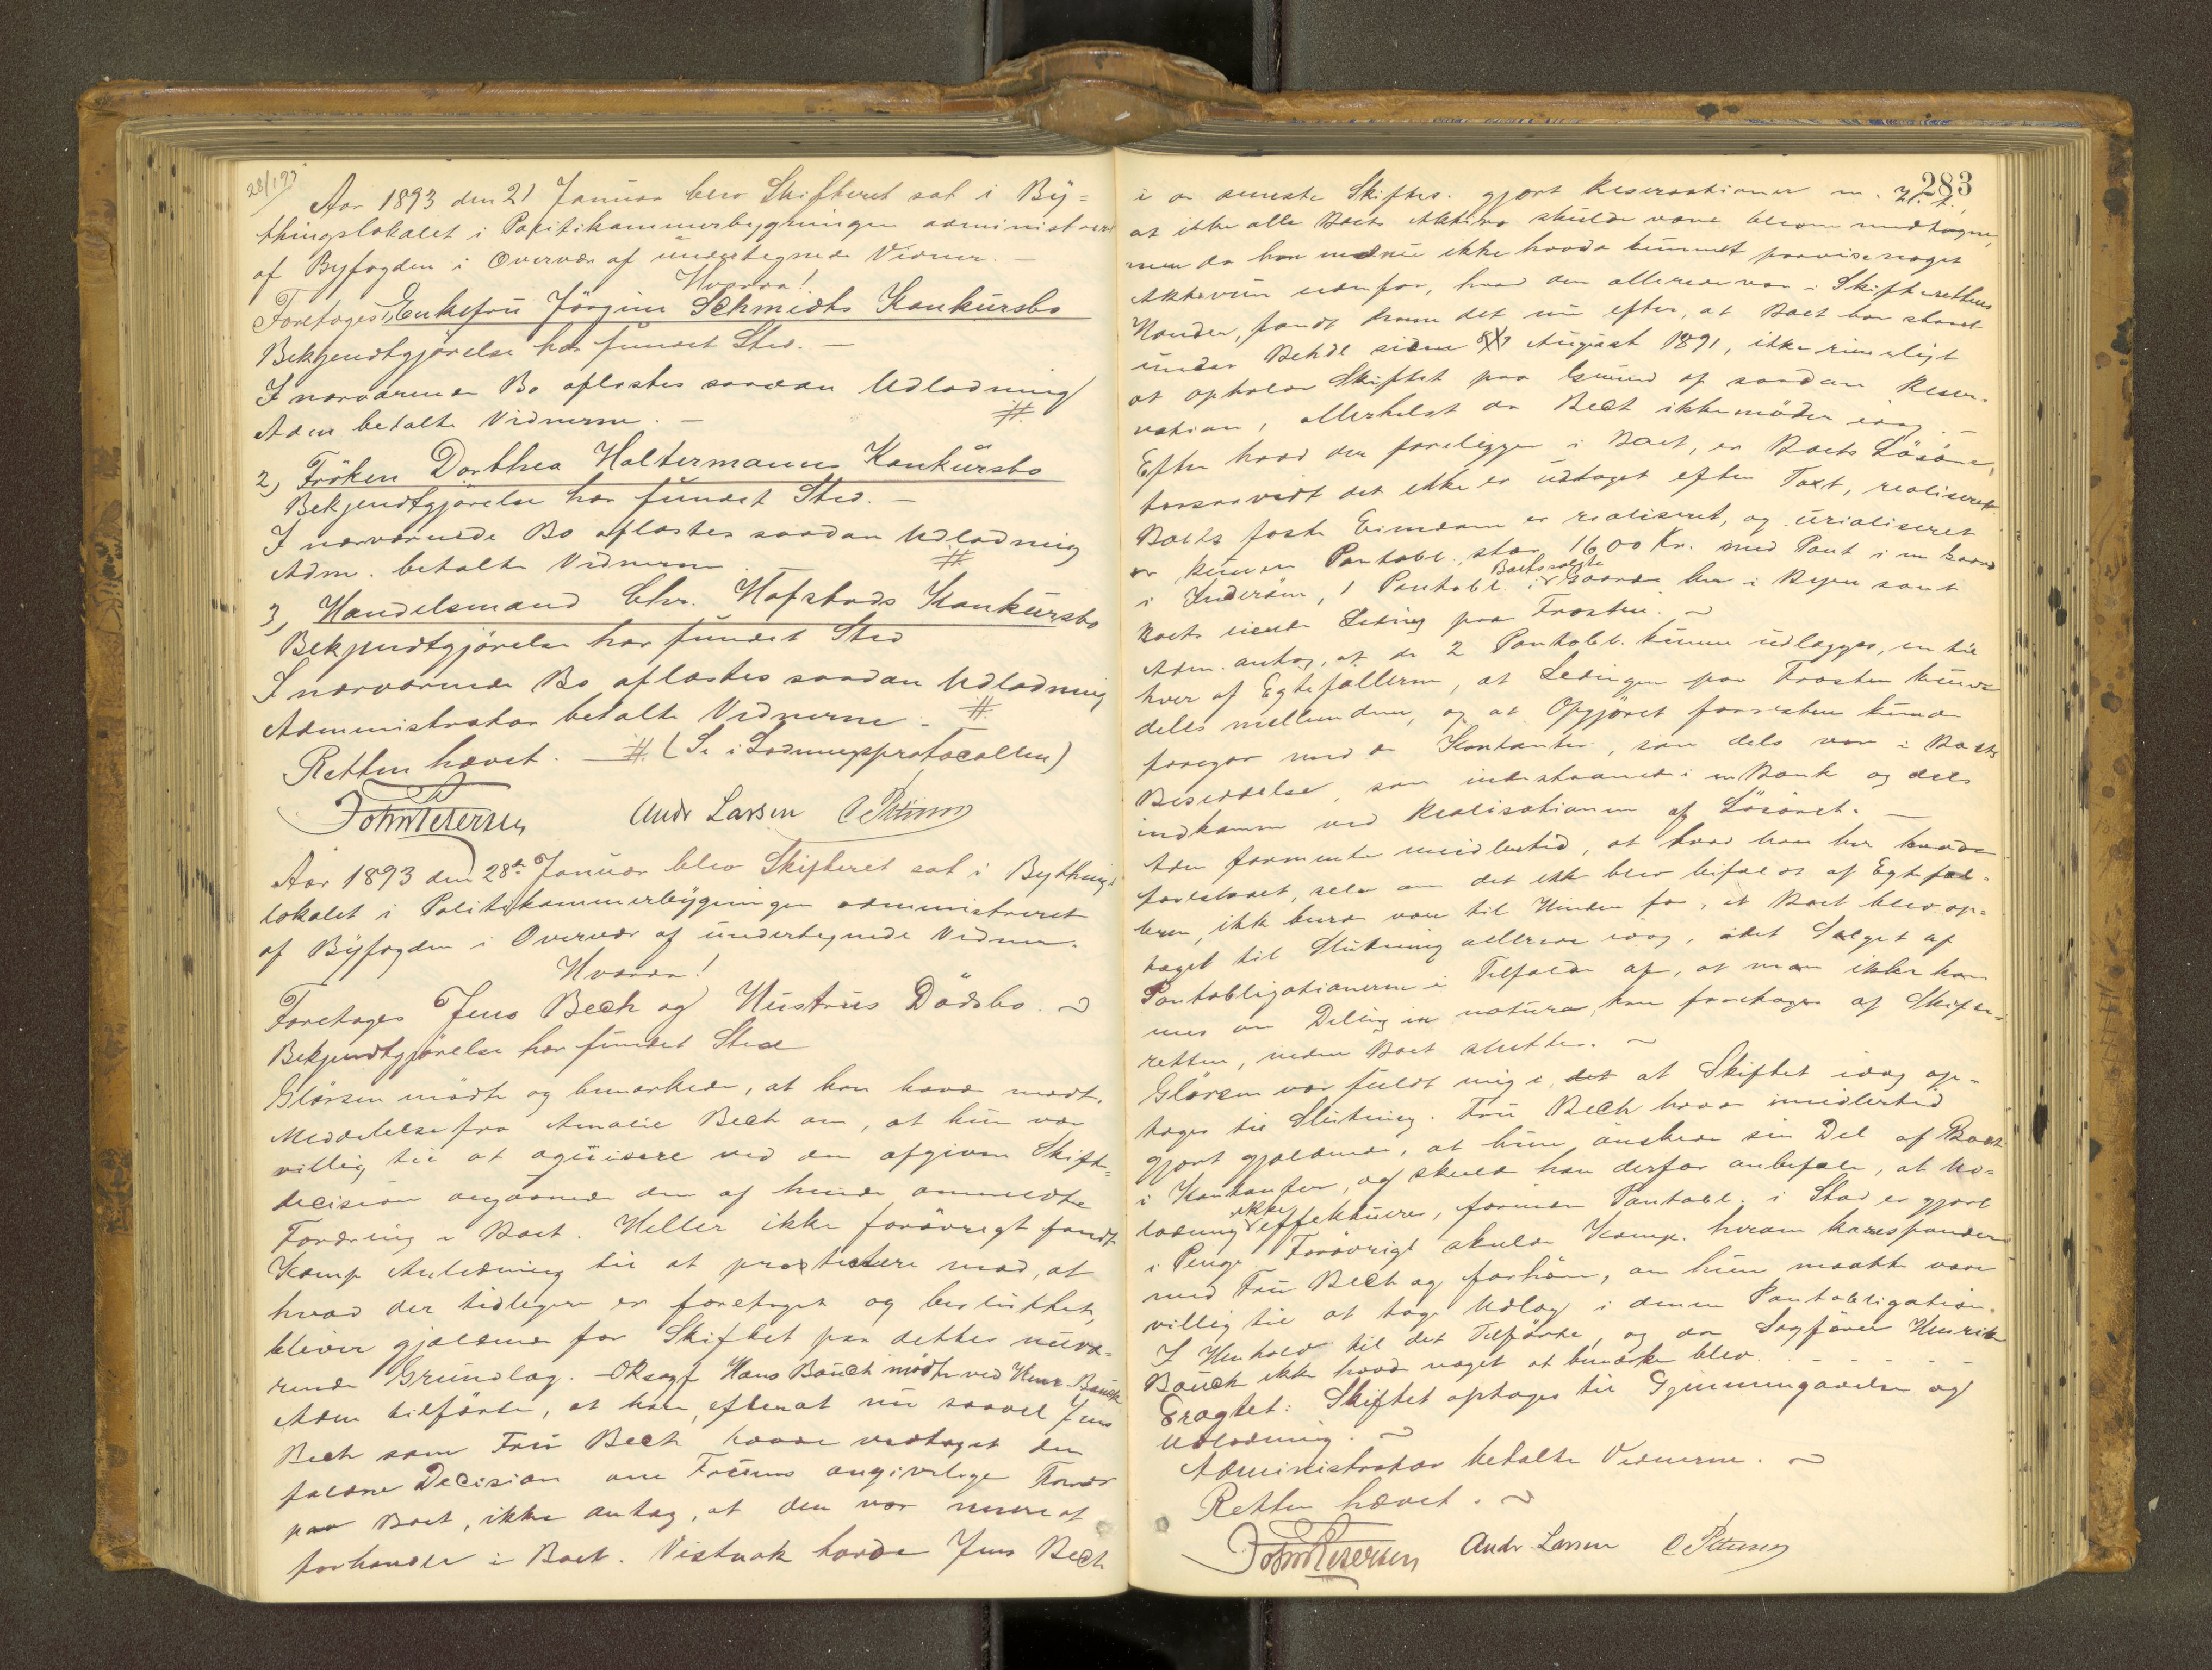 28/1 93
Aar 1893 den 21 Januar blev Skifteret sat i By=
thingslokalet i Politikammerbygningen administreret
af Byfogden i Overvær af undertegnede Vidner. –
Hvorda!
Foretages 1, Enkefru Jörgine Schmidts Konkursbo
Bekjendtgjörelse har fundet Sted. –
I nærværende Bo aflæstes saadan Udlodning
Adm betalte Vidnerne. – #
2, Fröken Dorthea Holtermanns Konkursbo
Bekjendtgjörelse har fundet Sted. –
I nærværende Bo aflæstes saadan Udlodning
Adm. betalte Vidnerne #
3, Handelsmand Chr. Hofstads Konkursbo
Bekjendtgjörelse har fundet Sted
I nærværende Bo aflæstes saadan Udlodning
Administrator betalte Vidnerne. – #
Retten hævet. – # (Se i Lodningsprotocollen)
John Petersen Andr Larsen C Petersen
Aar 1893 den 28de Januar blev Skifteret sat i Bythings
lokalet i Politikammerbygningen administreret
af Byfogden i Overvær af undertegnede Vidner.
Hvorda!
Foretages Jens Bech og Hustrus Dödsbo. ~
Bekjendtgjörelse har fundet Sted
Glörsen mödte og bemærkede, at han havde modt.
Meddelelse fra Amalie Bech om, at hun var
villig til at aquisere ved den afgivne Skifte=
decision angaaende den af hende anmeldte
Fordring i Boet. Heller ikke forövrigt fandt
Komp Anledning til at protestere mod, at
hvad der tidligere er foretaget og besluttet,
bliver gjældende for Skiftet paa dettes nuvæ=
rende Grundlag. – ORsagf Hans Bauck mödte ved Henr. Bauck
Adm tilförte, at han, efterat nu saavel Jens
Bech som Fru Bech havde vedtaget den
faldne Decision om Fruens angivelige Fordr
paa Boet, ikke antog, at der var mere at
forhandle i Boet. Vistnok havde Jens Bech
283
i de seneste Skiftes. gjort Reservationer m. H. t.
at ikke alle Boets Aktiva skulde være blevne medtagne,
men da han endnu ikke havde kunnet paavise noget
Aktivum udenfor, hvad der allerede var i Skifterettens
Hænder, fandt Komm det nu efter, at Boet har staaet
under Behdl siden August 1891, ikke rimeligt
at opholde Skiftet paa Grund af saadan Reser-
vation, allerhelst da Bech ikke möder idag. –
Efter hvad der foreligger i Boet, er Boets Lösöre,
forsaavidt det ikke er udtaget efter Taxt, realiseret.
Boets faste Eiendom er realiseret, og urealiseret
er kun en Pantobl. stor 1600 Kr. med Pant i en Gaard
i Inderöen, 1 Pantobl. i Boets solgte Gaarde her i Byen samt
Boets eiende Leding paa Frosten. ~
Adm. antog, at de 2 Pantobl. kunne udlægges, en til
hver af Egtefællerne, at Ledingen paa Frosten kunde
deles mellem dem, og at Opgjöret forresten kunde
foregaa med de Kontanter, som dels var i Boets
Besiddelse, som indestaaende i en Bank og dels
indkomne ved Realisationen af Lösöret. –
Adm formente imidlertid, at hvad han her havde
foreslaaet, selv om det ikke blev bifaldt af Egtefæl-
lerne, ikke burde være til Hinder for, at Boet blev op=
taget til Slutning allerede idag, idet Salget af
Pantobligationerne i Tilfælde af, at man ikke kom
mes om Deling in natura, kan foretages af Skifte=
retten, inden Boet sluttes. ~
Glörsen var fuldt enig i det at Skiftet idag op-
tages til Slutning. Fru Bech havde imidlertid
gjort gjældende, at hun önskede sin Del af Boet
i Kontanter, og skulde han derfor anbefale, at Ud=
lodning ikke effektueres, forinden Pantobl. i Stad er gjort
i Penge. Forövrigt skulde Komp. herom korrespondere
med Fru Bech og forhöre, om hun maatte være
villig til at tage Udlæg i denne Pantobligation.
I Henhold til det Tilförte, og da Sagförer Henrik
Bauck ikke havde noget at bemærke blev . – – – – –
Eragtet: Skiftet optages til Gjennemgaaelse og
Udlodning. ~
Administrator betalte Vidnerne. ~
Retten hævet. ~
John Petersen Andr. Larsen C Petersen